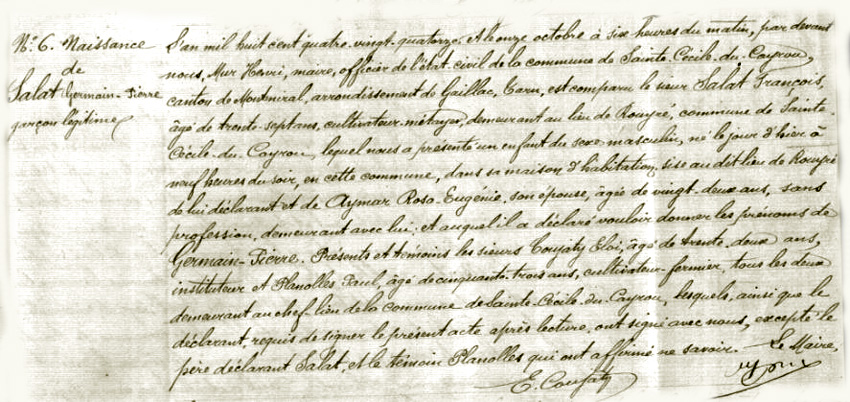 N.º 6. Naissance
de
Salat Germain-Pierre
garçon légitime
L'an mil huit cent quatre-vingt-quatorze. et le onze octobre à six heures du matin, par devant
nous, Mur Henri, maire, officier de l'état civil de la commune de Sainte-Cécile-du-Cayrou,
canton de Montmiral, arrondissement de Gaillac, Tarn, est comparu le sieur Salat François,
âgé de trente-sept ans, cultivateur-métayer, demeurant au lieu de Rouyré, commune de Sainte-
Cécile-du-Cayrou, lequel nous a présenté un enfant du sexe masculin, né le jour d'hier à
neuf heures du soir, en cette commune, dans sa maison d'habitation, sise au dit lieu de Rouyré
de lui déclarant et de Aymar Rosa-Eugénie, son épouse, âgée de vingt-deux ans, sans
profession, demeurant avec lui; et auquel il a déclaré vouloir donner les prénoms de
Germain-Pierre. Présents et témoins les sieurs Coujaty Eloi, âgé de trente-deux ans,
instituteur et Planolles Paul, âgé de cinquante-trois ans, cultivateur-fermier, tous les deux
demeurant au chef-lieu de la commune de Sainte-Cécile-du-Cayrou, lesquels, ainsi que le
déclarant, requis de signer le présent acte après lecture, ont signé avec nous, excepté le
père déclarant Salat, et le témoin Planolles qui ont affirmé ne savoir. Le Maire,
E. Coujaty